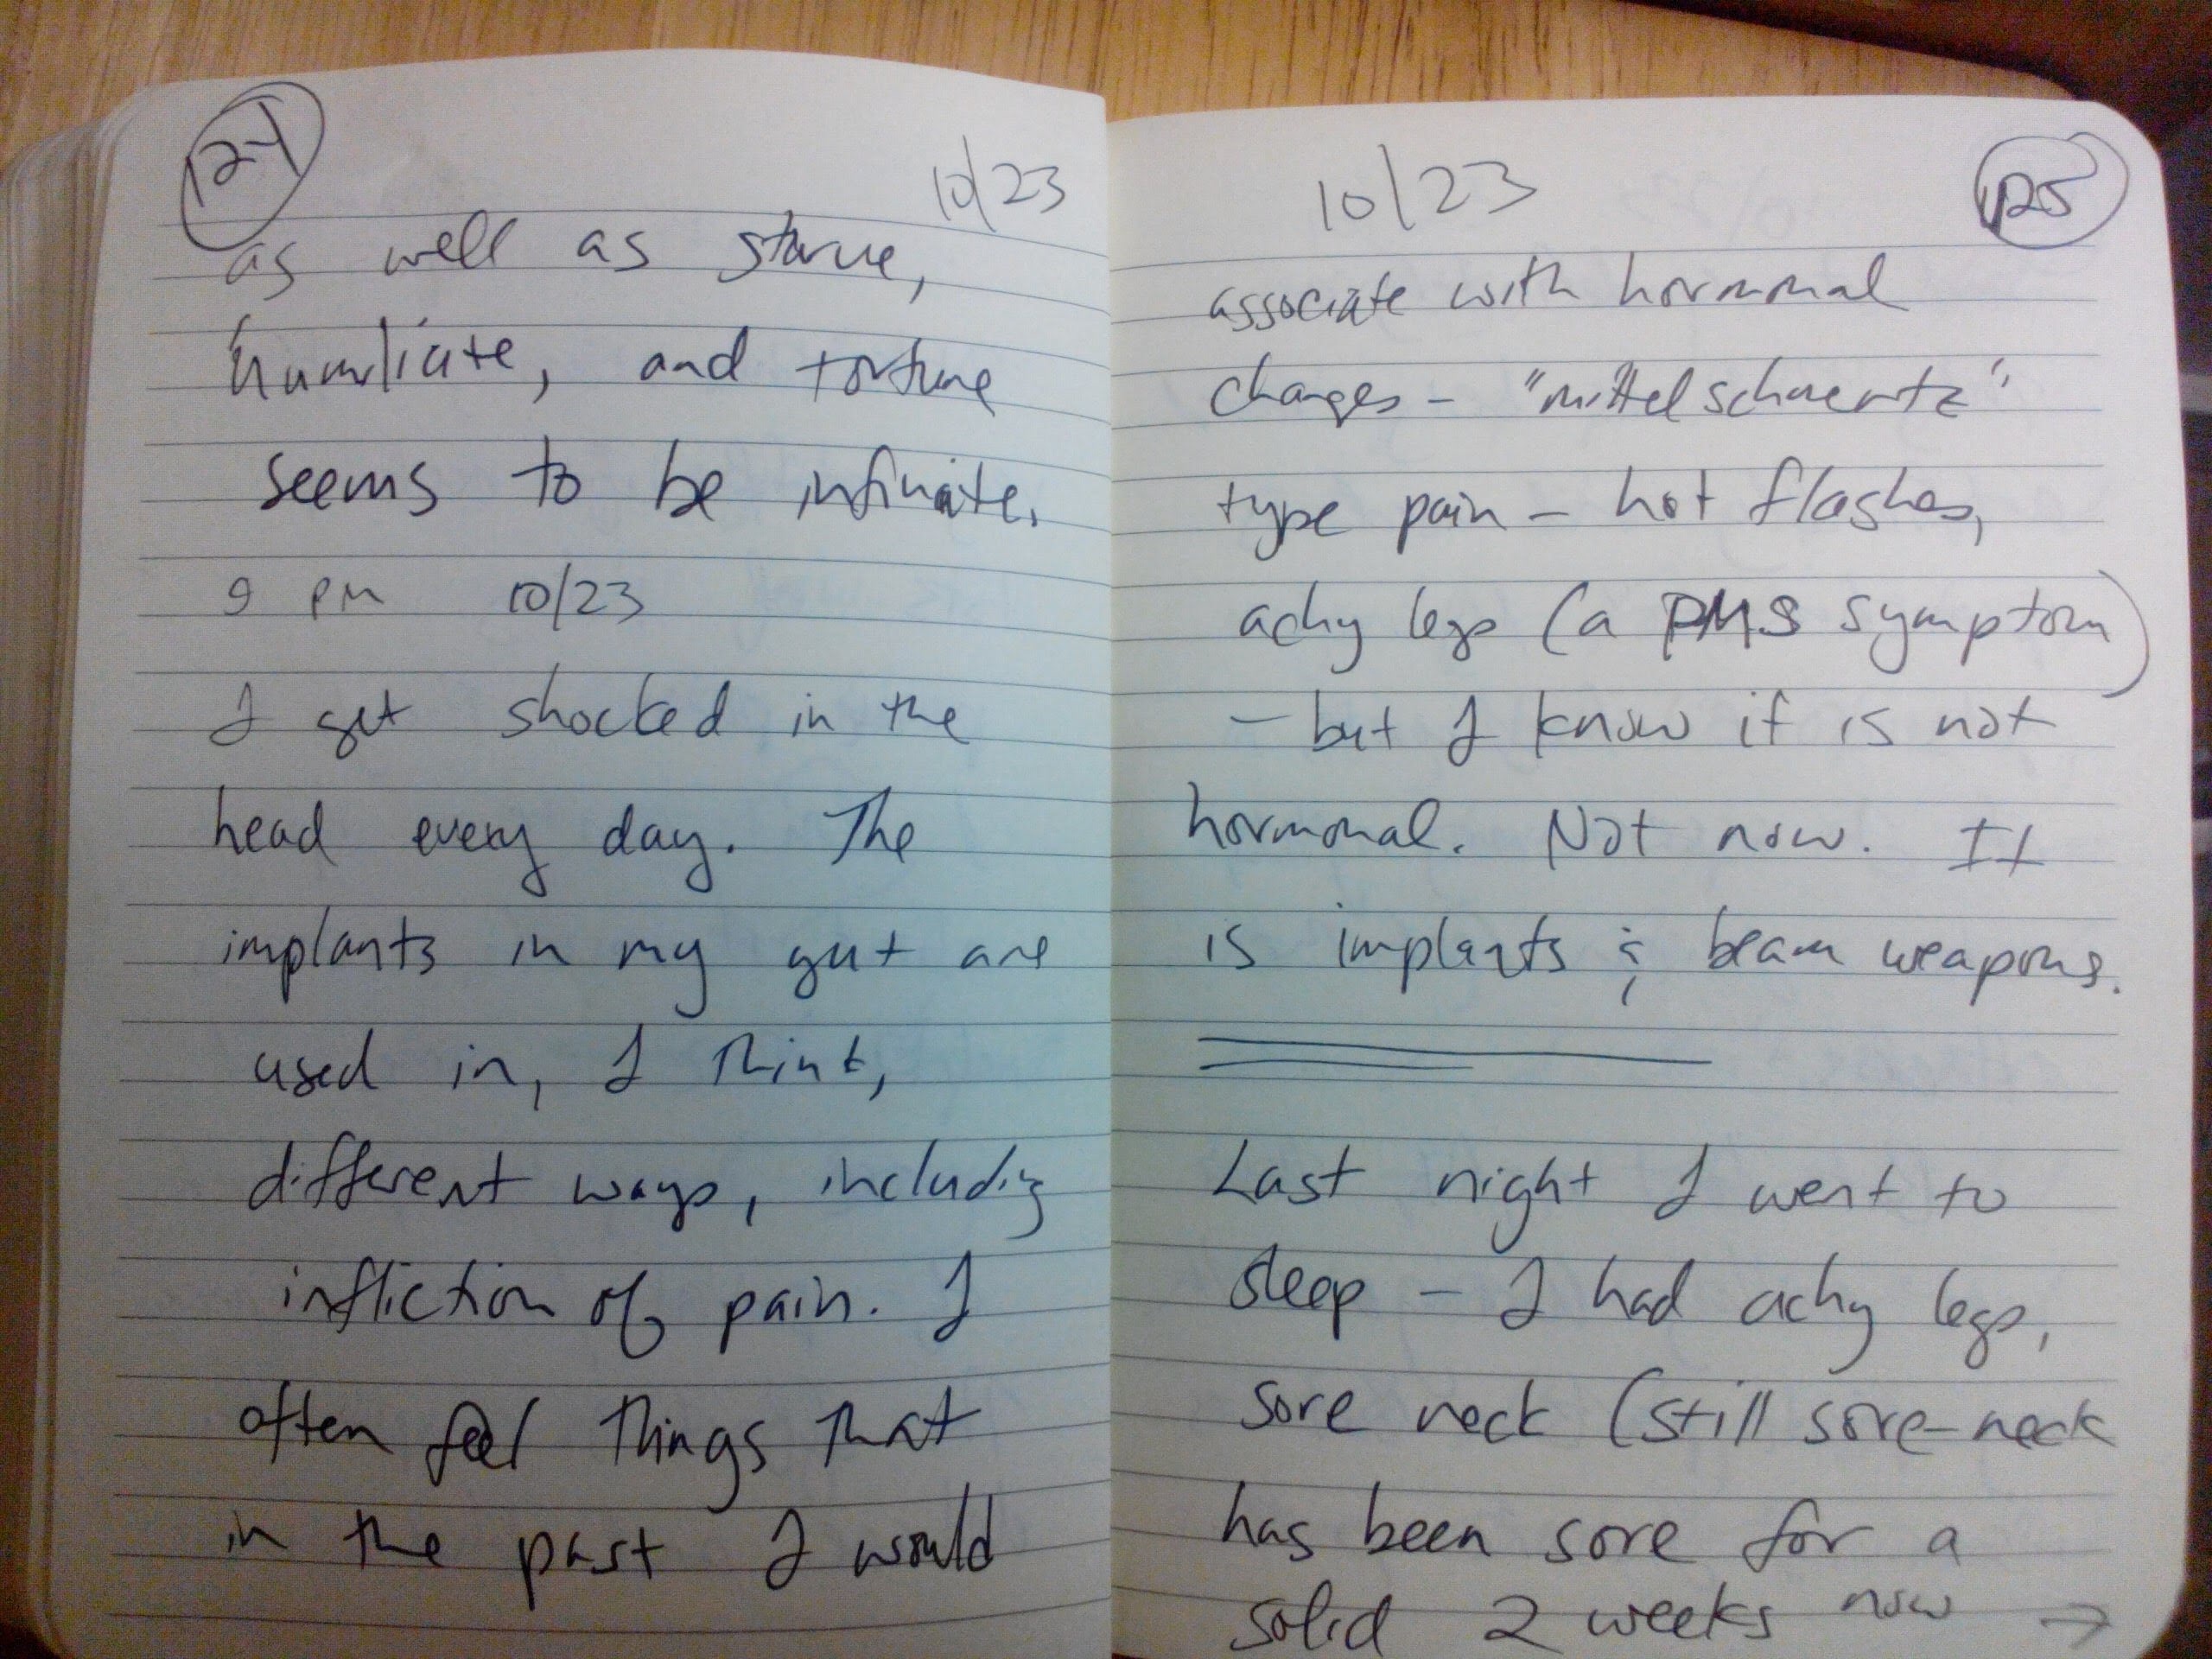 124
10/23
as well as starve,
humiliate, and torture
seems to be infinate.
9 PM 10/23
I get shocked in the
head every day. The
implants in my gut are
used in, I think,
different ways, including
infliction of pain. I
often feel things that
in the past I would
10/23
125
associate with hormonal
changes - "mittelschmertz"
type pain - hot flashes,
achy legs (a PMS symptom)
- but I know it is not
hormonal. Not now. It
is implants & beam weapons.
Last night I went to
sleep - I had achy legs,
sore neck (still sore-neck
has been sore for a
solid 2 weeks now →